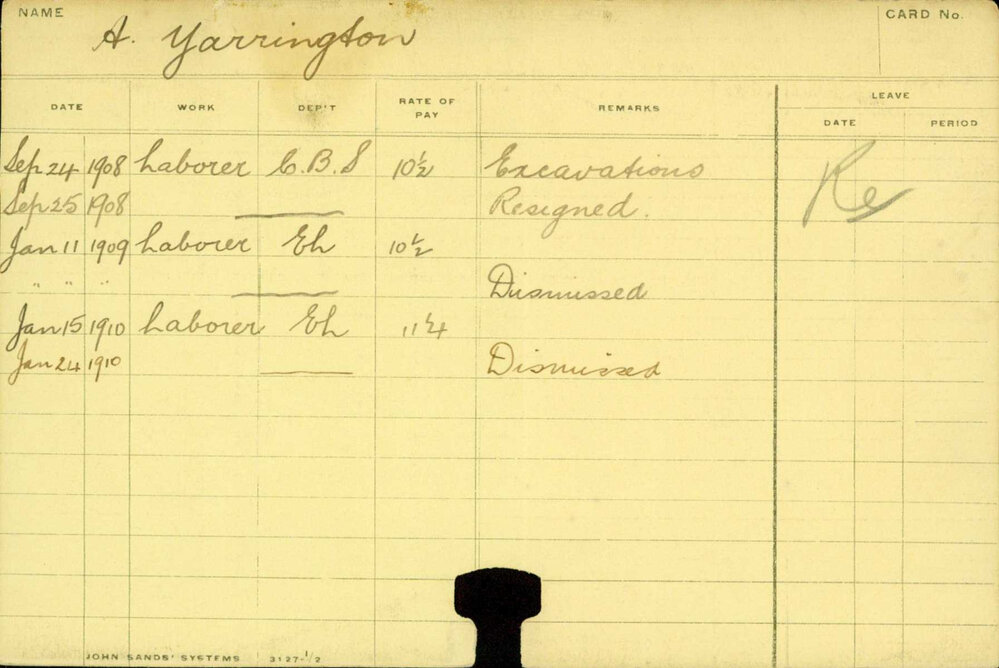 NAME A. Yarrington CARD No.
DATE WORK DEP'T RATE OF PAY REMARKS LEAVE
DATE PERIOD
Sep 24 1908 Laborer C.B.S 10½ Excavations Re
Sep 25 1908 Resigned.
Jan 11 1909 Laborer Eh 10½
" " " Dismissed
Jan 15 1910 Laborer Eh 11¼
Jan 24 1910 Dismissed
JOHN SANDS' SYSTEMS 3127-1/2